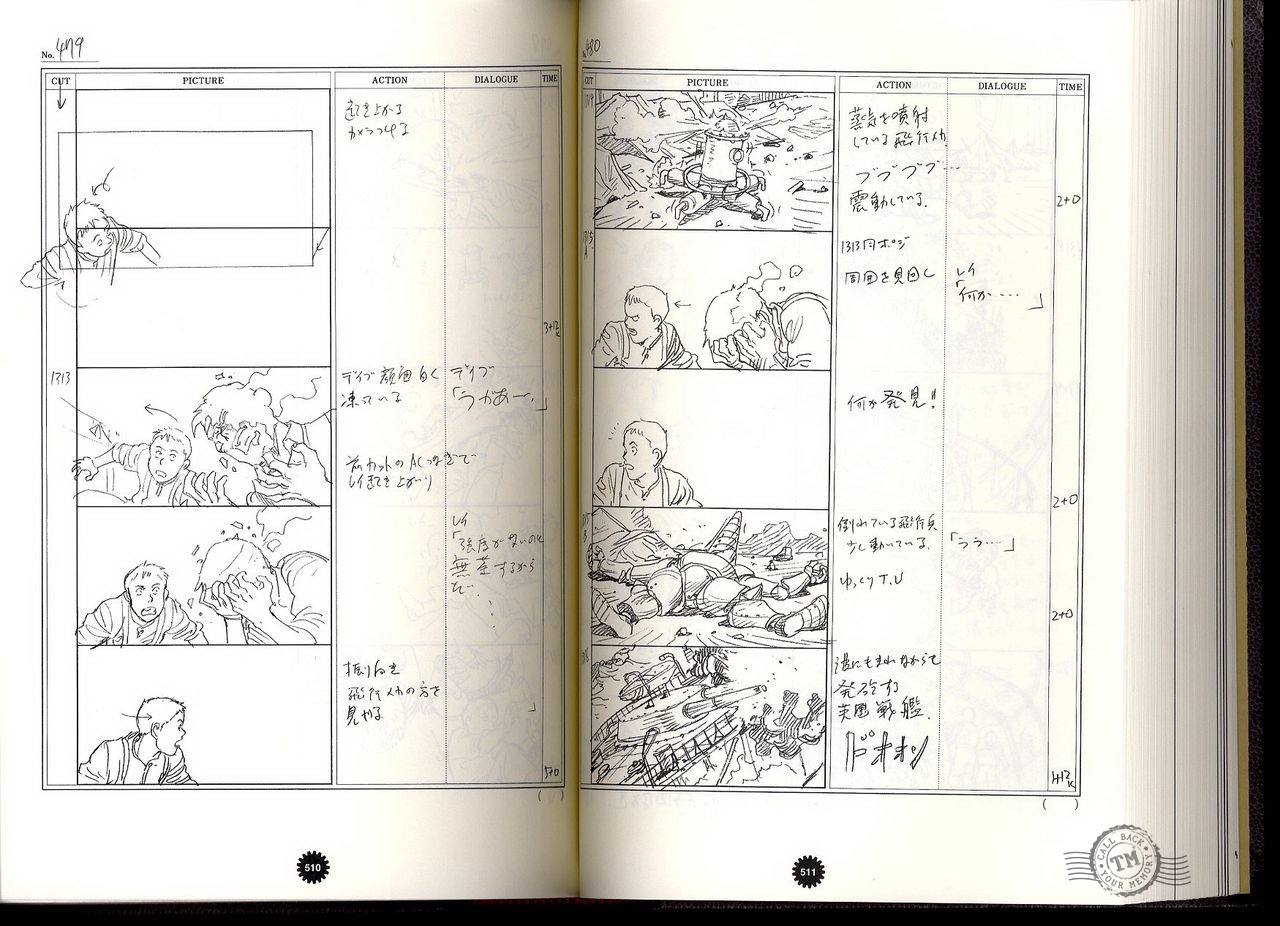 No. 479
CUT
PICTURE
ACTION
DIALOGUE
TIME
起き上がる
3+12K
1313
デイブ 顔面白く
凍っている
デイブ
「うがあー、」
前カットのACつなぎで
レイ起き上がり
レイ
「強度がないのに
無茶するから
だ…
振り向き
飛行メカの方を
見やる
5+0
( )
510
480
CUT
PICTURE
ACTION
DIALOGUE
TIME
1314
蒸気を噴射
している飛行メカ
ブブブブ…
震動している。
2+0
1315
A
1313同ポジ
周囲を見回し
レイ
「何か……」
何か発見!!
2+0
倒れている飛行兵
少し動いている。
「うう…」
ゆっくりT.U
2+0
波にもまれながらも
発砲する
英国戦艦。
4+12K
( )
511
CALL BACK
TM
YOUR MEMORY